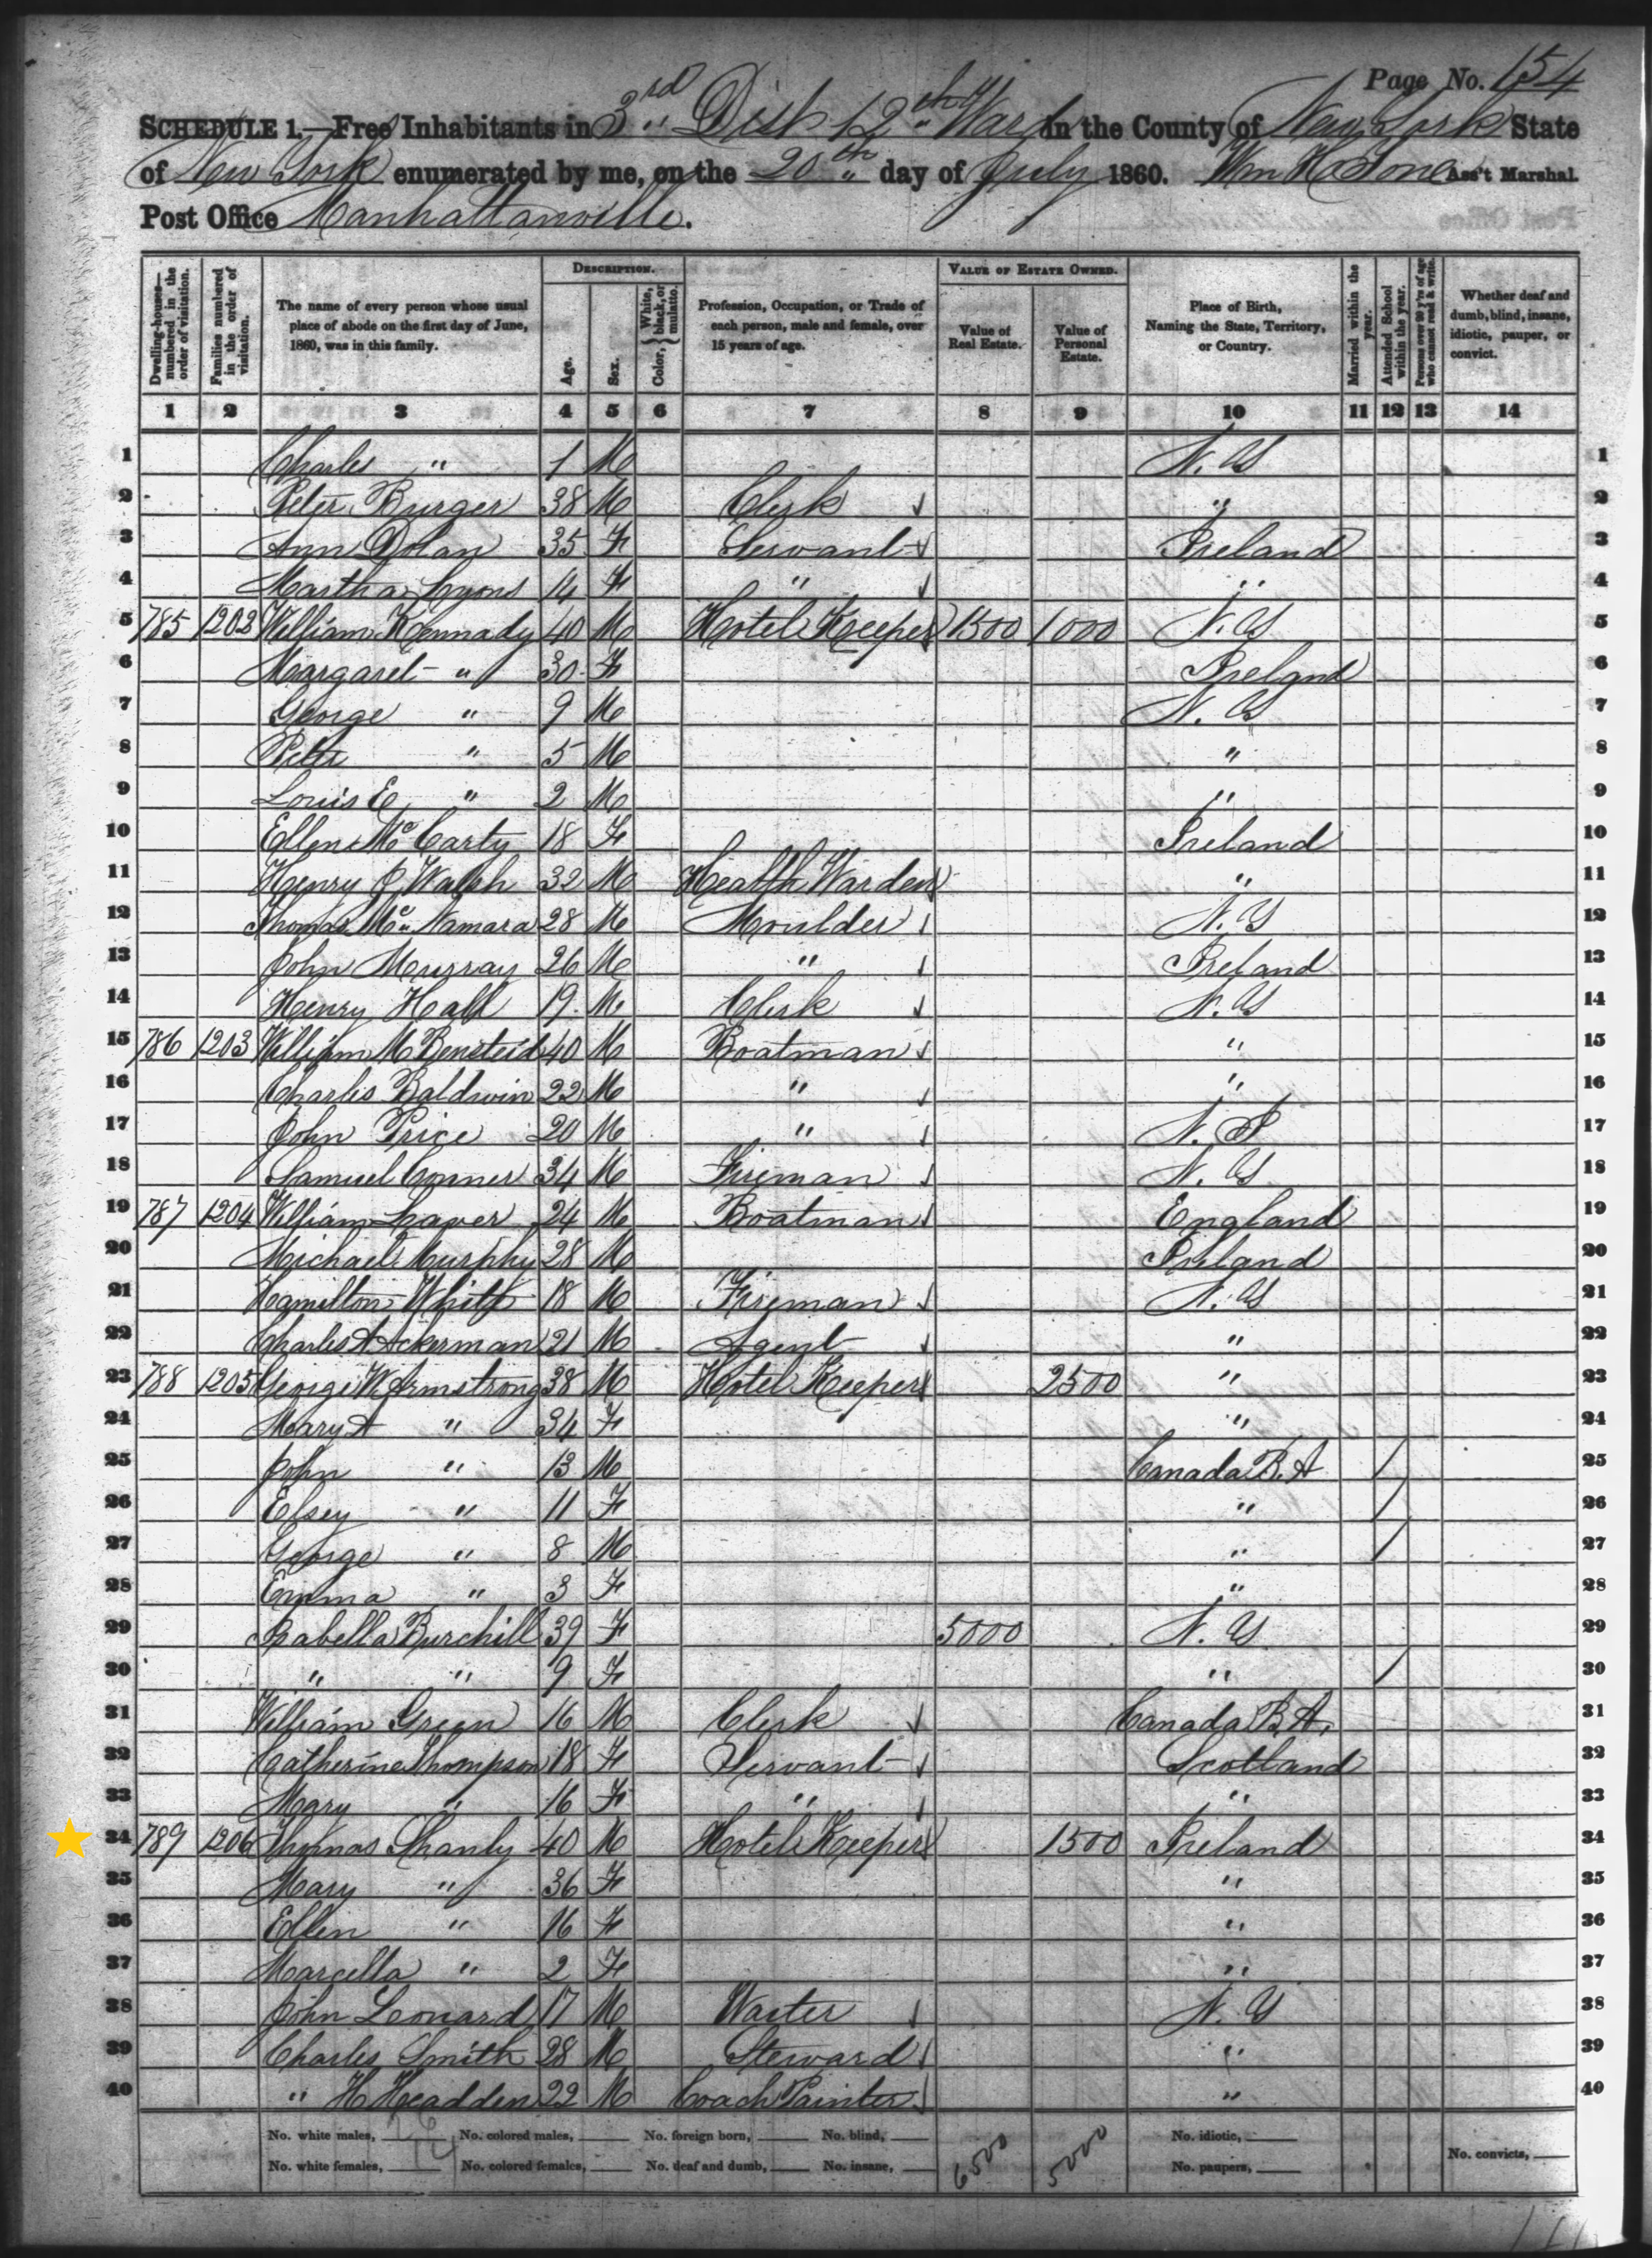 Page No. 154
SCHEDULE 1.—Free Inhabitants in 3rd Dist 12th Ward in the County of New York State
of New York enumerated by me, on the 20th day of July 1860. Wm H Tone Ass't Marshal.
Post Office Manhattanville.
DESCRIPTION. VALUE OF ESTATE OWNED.
Dwelling-houses—numbered in the order of visitation. Families numbered in the order of visitation. The name of every person whose usual place of abode on the first day of June, 1860, was in this family. Age. Sex. Color, {White, black, or mulatto. Profession, Occupation, or Trade of each person, male and female, over 15 years of age. Value of Real Estate. Value of Personal Estate. Place of Birth, Naming the State, Territory, or Country. Married within the year. Attended School within the year. Persons over 20 y'rs of age who cannot read & write. Whether deaf and dumb, blind, insane, idiotic, pauper, or convict.
1 2 3 4 5 6 7 8 9 10 11 12 13 14
1 Charles " 1 M N. Y 1
2 Peter Burger 38 M Clerk " 2
3 Ann Dolan 35 F Servant Ireland 3
4 Martha Lyons 14 F " " 4
5 785 1202 William Kennady 40 M Hotel Keeper 1500 1000 N. Y 5
6 Margaret " 30 F Ireland 6
7 George " 9 M N. Y 7
8 Peter " 5 M " 8
9 Louis E " 2 M " 9
10 Ellen Mc Carty 18 F Ireland 10
11 Henry J Walsh 32 M Health Warden " 11
12 Thomas Mc Namara 28 M Moulder N. Y 12
13 John Murray 26 M " Ireland 13
14 Henry Hall 19 M Clerk N. Y 14
15 786 1203 William M Bensteid 40 M Boatman " 15
16 Charles Baldwin 22 M " " 16
17 John Price 20 M " N. J 17
18 Samuel Conner 34 M Fireman N. Y 18
19 787 1204 William Laver 24 M Boatman England 19
20 Michael Murphy 28 M Ireland 20
21 Hamilton White 18 M Fireman N. Y 21
22 Charles A Ackerman 21 M Agent " 22
23 788 1205 George W Armstrong 38 M Hotel Keeper 2500 " 23
24 Mary A " 34 F " 24
25 John " 13 M Canada B. A / 25
26 Elsey " 11 F " / 26
27 George " 8 M " / 27
28 Emma " 3 F " 28
29 Isabella Burchill 39 F 5000 N. Y. 29
30 " " 9 F " / 30
31 William Green 16 M Clerk Canada B. A. 31
32 Catherine Thompson 18 F Servant Scotland 32
33 Mary " 16 F " " 33
34 789 1206 Thomas Shanly 40 M Hotel Keeper 1500 Ireland 34
35 Mary " 36 F " 35
36 Ellen " 16 F " 36
37 Marcella " 2 F " 37
38 John Leonard 17 M Waiter N. Y 38
39 Charles Smith 28 M Steward " 39
40 " H Headden 22 M Coach Painter " 40
No. white males, 26 No. colored males, No. foreign born, No. blind, 6500 5000 No. idiotic,
No. white females, 14 No. colored females, No. deaf and dumb, No. insane, No. paupers, No. convicts,